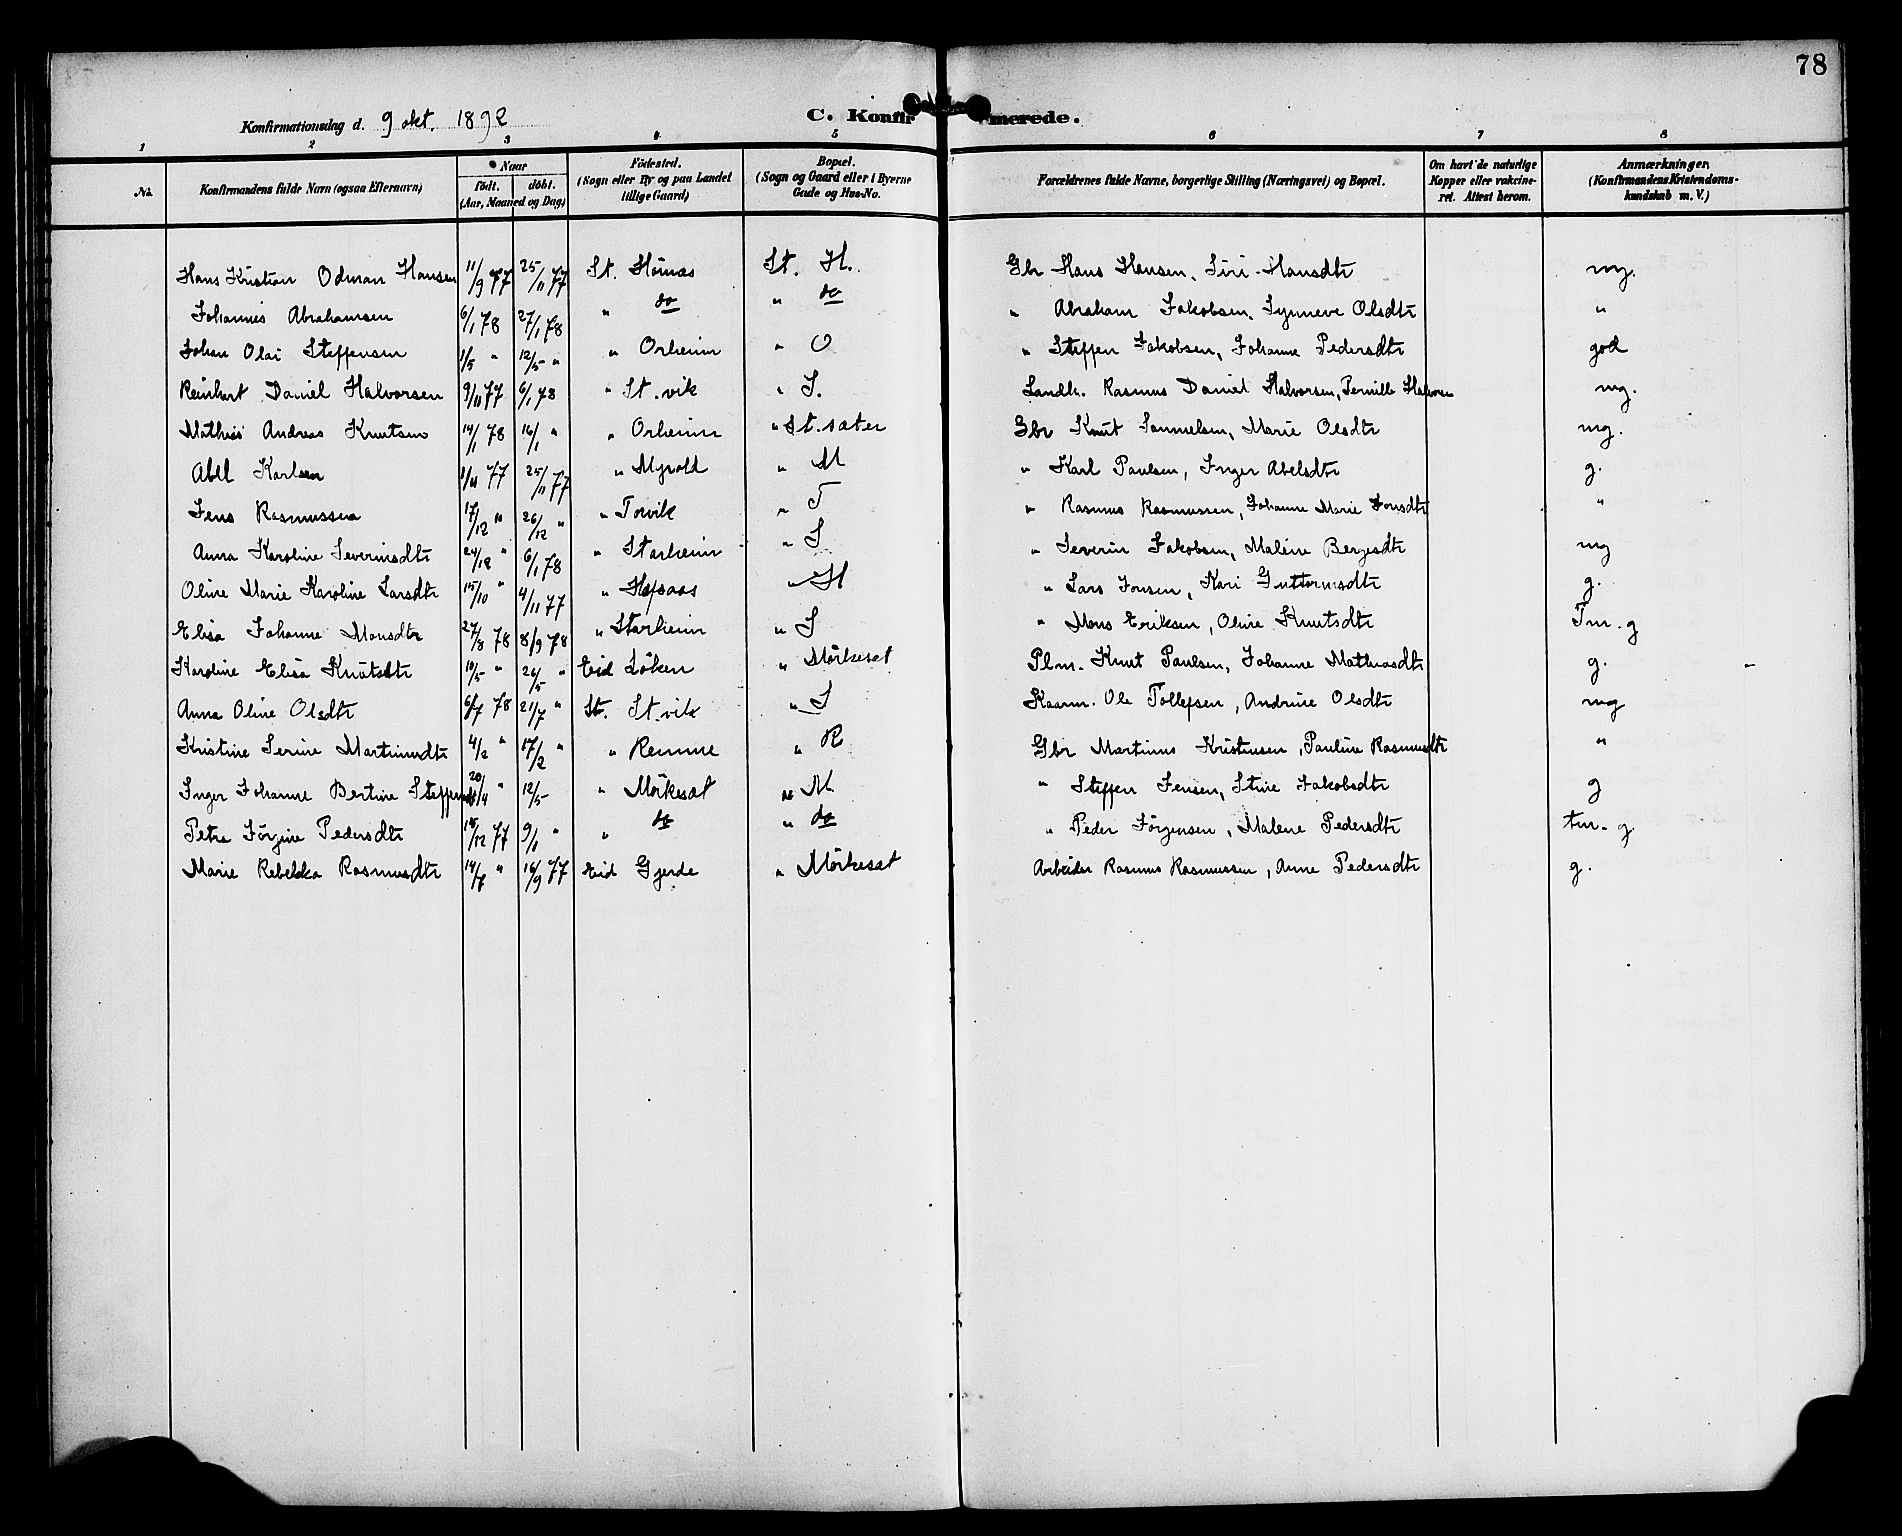 78
Konfirmationsdag d. 9 okt. 1892 C. Konfirmerede.
1 2 3 4 5 6 7 8
No. Konfirmandens fulde Navn (ogsaa Efternavn) Naar født. døbt. (Aar, Maaned og Dag) Fødested. (Sogn eller By og paa Landet tillige Gaard) Bopæl. (Sogn og Gaard eller i Byerne Gade og Hus-No. Forældrenes fulde Navne, borgerlige Stilling (Næringsvei) og Bopæl. Om havt de naturlige Kopper eller vakcineret. Attest herom. Anmærkninger. (Konfirmandens Kristendomskundskab m. V.)
Hans Kristian Odman Hansen 11/9 77 25/11 77 St. Hornæs St. H. Gbr Hans Hansen, Siri Hansdtr mg.
Johannes Abrahamsen 6/1 78 27/1 78 " do " do " Abraham Jakobsen, Synneve Olsdtr "
Johan Olai Steffensen 1/5 " 12/5 " " Orheim " O " Steffen Jakobsen, Johanne Pedersdtr god
Reinhart Daniel Halvorsen 9/11 77 6/1 78 " St. vik " S. Landh. Rasmus Daniel Halvorsen, Pernille Halvorsen mg.
Mathias Andreas Knutsen 14/1 78 16/1 " " Orheim " St. sæter Gbr Knut Samuelsen, Marie Olsdtr mg.
Abel Karlsen 1/11 77 25/11 77 " Myrold " M " Karl Paulsen, Inger Abelsdtr g.
Jens Rasmussen 17/12 " 26/12 " " Torvik " T " Rasmus Rasmussen, Johanne Marie Jonsdtr "
Anna Karoline Severinsdtr 24/12 " 6/1 78 " Starheim " S " Severin Jakobsen, Malene Bergesdtr mg
Oline Marie Karoline Larsdtr 15/10 " 4/11 77 " Hopsaas " H " Lars Jonsen, Kari Guttormsdtr g.
Elisa Johanne Monsdtr 27/8 78 8/9 78 " Starheim " S " Mons Eriksen, Oline Knutsdtr Tm. g
Karoline Elisa Knutsdtr 10/5 " 26/5 " Eid Løken " Mørkesæt Plm. Knut Paulsen, Johanne Mathiasdtr g.
Anna Oline Olsdtr 6/7 78 21/7 " St. St. vik " S Kaarm. Ole Tollefsen, Andrine Olsdtr mg
Kristine Serine Martinusdtr 4/2 " 17/2 " " Remme " R Gbr Martinus Kristensen, Pauline Rasmusdtr "
Inger Johanne Bertine Steffensdtr 20/4 " 12/5 " Mørkesæt " M " Steffen Jensen, Stine Jakobsdtr g
Petra Jørgine Pedersdtr /12 77 9/1 " " do " do " Peder Jørgensen, Malene Pedersdtr tm. g
Marie Rebekka Rasmusdtr 14/7 " 16/9 77 Eid Gjerde " Mørkesæt Arbeider Rasmus Rasmussen, Anne Pedersdtr g.